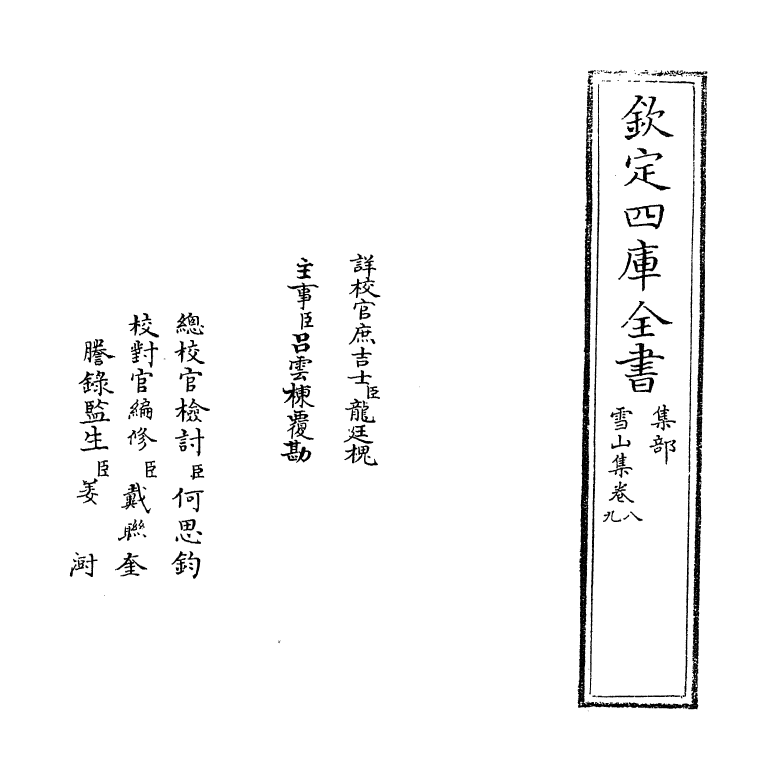 欽定四庫全書
集部
雪山集卷八九
詳校官庶吉士臣龍廷槐
主事臣呂雲棟覆勘
總校官檢討臣何思鈞
校對官編修臣戴聯奎
謄錄監生臣姜澍